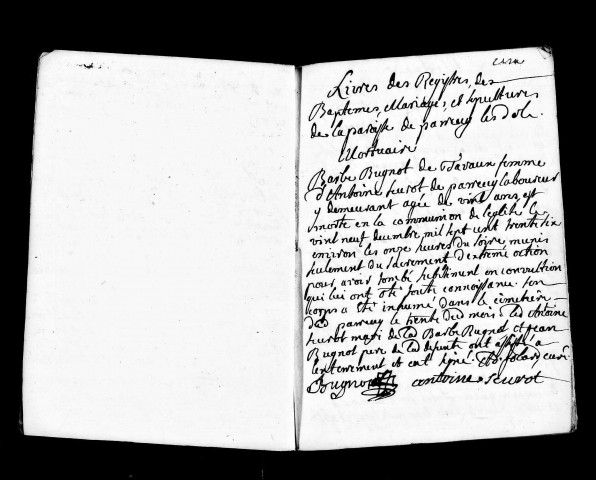 Livres des Registres, des
Baptemes, Mariages, et sepultures
de la paroisse de parrecey les dole.
Mortuaire
Barbe Bugnot de Tavaux femme
d'Antoine seurot de parrecey laboureur
y demeurant agée de vint ans, est
morte en la communion de l'eglise le
vint neuf decembre mil sept cent trente six
environ les onze heures du soire, munis
seulement du sacrement d'extreme onction
pour avoir tombé subitement en convultion
qui lui ont oté toute connoissance. son
corps a été inhumé dans le cimetiere
dud parrecey le trente dud mois. led Antoine
seurot mari de lad Barbe Bugnot et jean
Bugnot pere de lad defunte ont assisté a
lenterrement et ont signé. curé
Bugnot antoine seurot